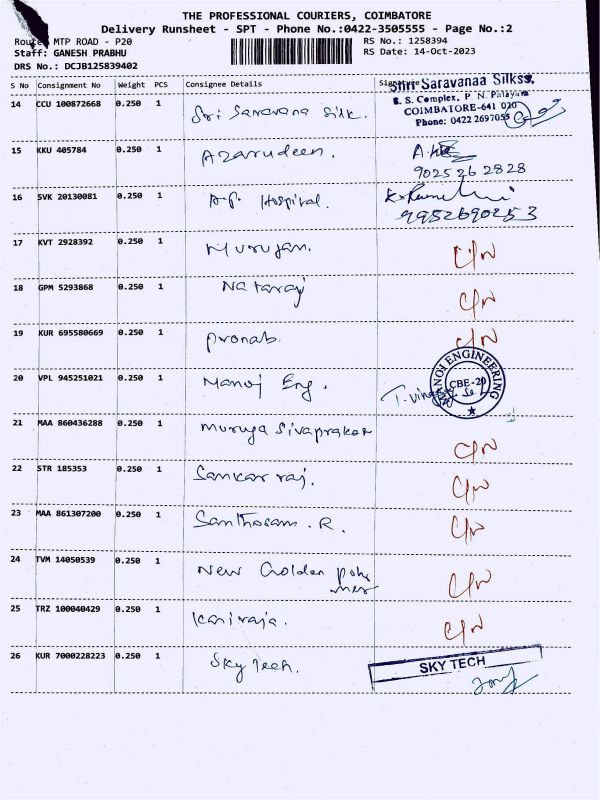 THE PROFESSIONAL COURIERS, COIMBATORE
Delivery Runsheet - SPT - Phone No.:0422-3505555 - Page No.:2
MTP ROAD - P20
Staff: GANESH PRABHU
DRS No.: DCJB125839402
RS No.: 1258394
RS Date: 14-Oct-2023
S No Consignment No Weight PCS Consignee Details Signature
Shri Saravanaa Silkss.
S. S. Complex, P. N. Palayam
COIMBATORE-641 020
Phone: 0422 2697055
14 CCU 100872668 0.250 1 Sri Saravana Silk.
15 KKU 405784 0.250 1 Azarudeen.
9025262828
16 SVK 20130081 0.250 1 A.P. Hospital.
9952690253
17 KVT 2928392 0.250 1 Murugan. C/N
18 GPM 5293868 0.250 1 Nataraj C/N
19 KUR 695580669 0.250 1 Pronab. C/N
20 VPL 945251021 0.250 1 Manoj Eng.
MANOJ ENGINEERING
CBE-20
21 MAA 860436288 0.250 1 Muruga Sivaprakar C/N
22 STR 185353 0.250 1 Sankar raj. C/N
23 MAA 861307200 0.250 1 Santhosam. R. C/N
24 TVM 14050539 0.250 1 New Golden C/N
25 TRZ 100040429 0.250 1 Kaniraja. C/N
26 KUR 7000228223 0.250 1 Sky Tech. SKY TECH